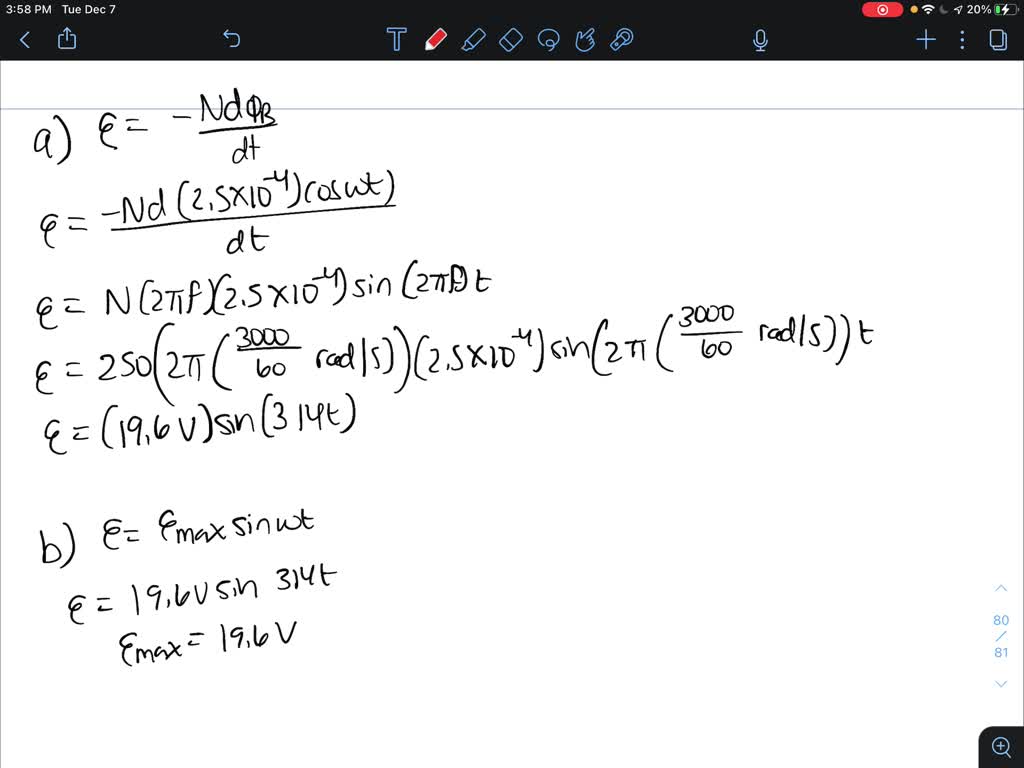 3:58 PM Tue Dec 7
20%
T
a) ε = -NdΦB/dt
ε = -Nd(2.5×10⁻⁴)cosωt)/dt
ε = N(2πf)(2.5×10⁻⁴)sin(2πf)t
ε = 250(2π(3000/60 rad/s))(2.5×10⁻⁴)sin(2π(3000/60 rad/s))t
ε = (19.6V)sin(314t)
b) ε = εmax sinωt
ε = 19.6V sin 314t
εmax = 19.6V
80
/
81